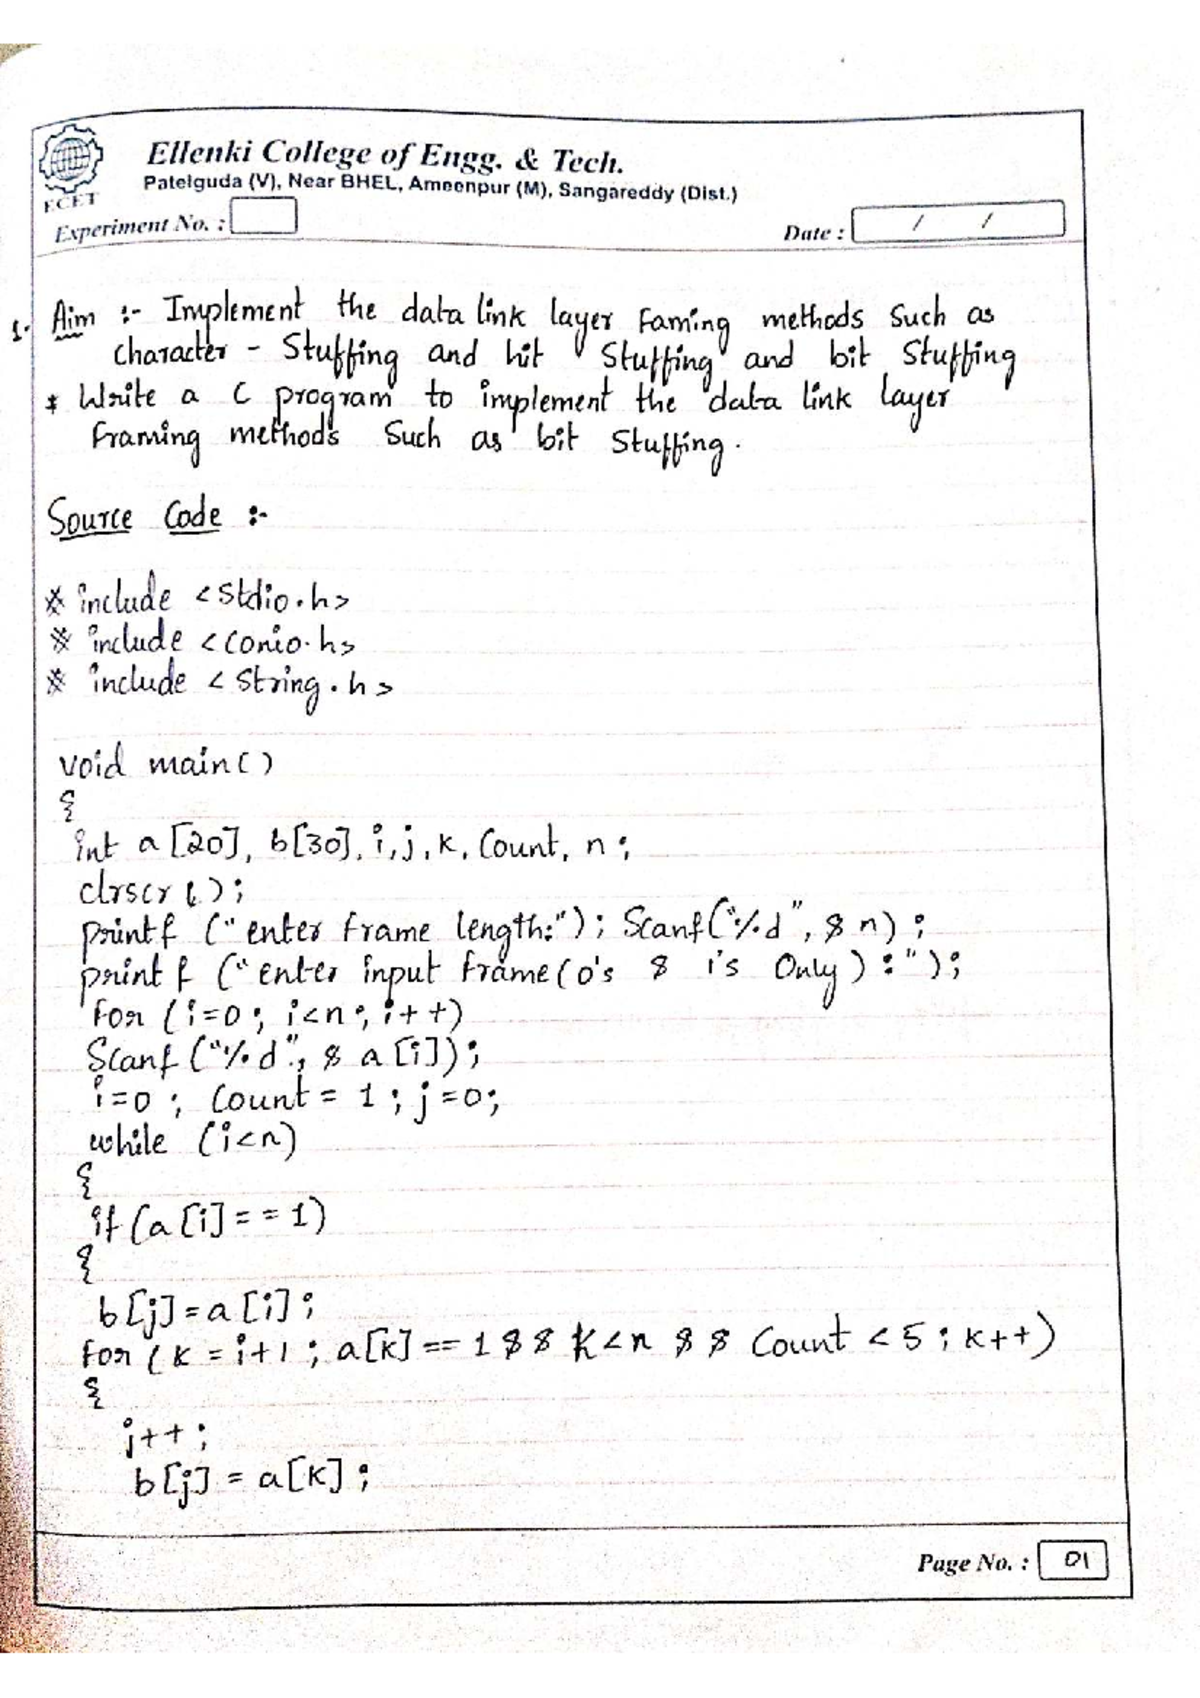 Ellenki College of Engg. & Tech.
Patelguda (V), Near BHEL, Ameenpur (M), Sangareddy (Dist.)
ECET
Experiment No. :
Date : / /
1. Aim :- Implement the data link layer Faming methods Such as
character - Stuffing and hit Stuffing and bit Stuffing
* Write a C program to implement the data link layer
Framing methods Such as bit Stuffing.
Source Code :-
# include <Stdio.h>
# include <conio.h>
# include <String.h>
void main()
{
int a[20], b[30], i, j, k, Count, n;
clrscr();
printf ("enter frame length:"); Scanf("%d", & n);
printf ("enter input frame (0's & 1's Only) :");
for (i=0; i<n; i++)
Scanf ("%d", & a[i]);
i=0; Count = 1; j=0;
while (i<n)
{
if (a[i]==1)
{
b[j]=a[i];
for (k = i+1; a[k]==1 && k<n && Count <5; k++)
{
j++;
b[j] = a[k];
Page No. : 01